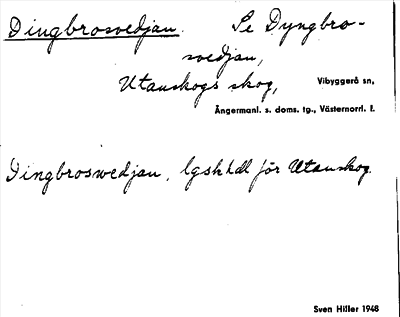 Dingbrosvedjan. Se Dyngbro-
svedjan,
Utanskogs skog, Vibyggerå sn,
Ångermanl. s. doms. tg., Västernorrl. l.
Dingbroswedjan, lgshhdl för Utanskog.
Sven Hiller 1948